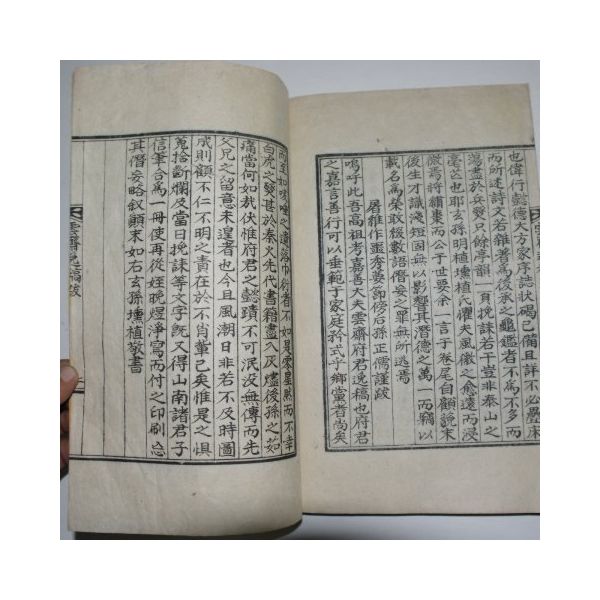 也偉行懿德大方家序誌狀碣已備且詳不必疊床
而所述詩文若雜著爲後承之龜鑑者不爲不多而
蕩盡於兵燹只餘亭韻一頁挽誄若干豈非泰山之
毫芒也耶玄孫明植壎植氏懼夫風徽之愈遠而浸
微焉將繡棗而公于世要余一言于卷尾自顧晩末
後生才識淺短固無以影響其潛德之萬一而竊以
載名爲榮取綴數語僭妄之罪無所逃焉
屠維作噩季夏節傍後孫正儒謹跋
嗚呼此吾高祖考嘉善大夫雲齋府君逸稿也府君
之嘉言善行可以垂範于家庭矜式乎鄕黨者尚矣
而至如咳唾之遺落巾衍者不如是零星然而不幸
白虎之燹甚於秦火先代書籍盡入灰燼後孫之茹
痛當何如哉伏惟府君之懿蹟不可泯沒無傳而先
父兄之留意未遑者也今且風潮日非若不及時圖
成則顧不仁不明之責在於不肖輩已矣惟是之惧
蒐拾斷爛及當日挽誄等文字旣又得山南諸君子
信筆合爲一冊使再從姪晩煜淨寫而付之印刷忘
其僭妄略叙顚末如右玄孫壎植敬書
雲齋逸稿跋